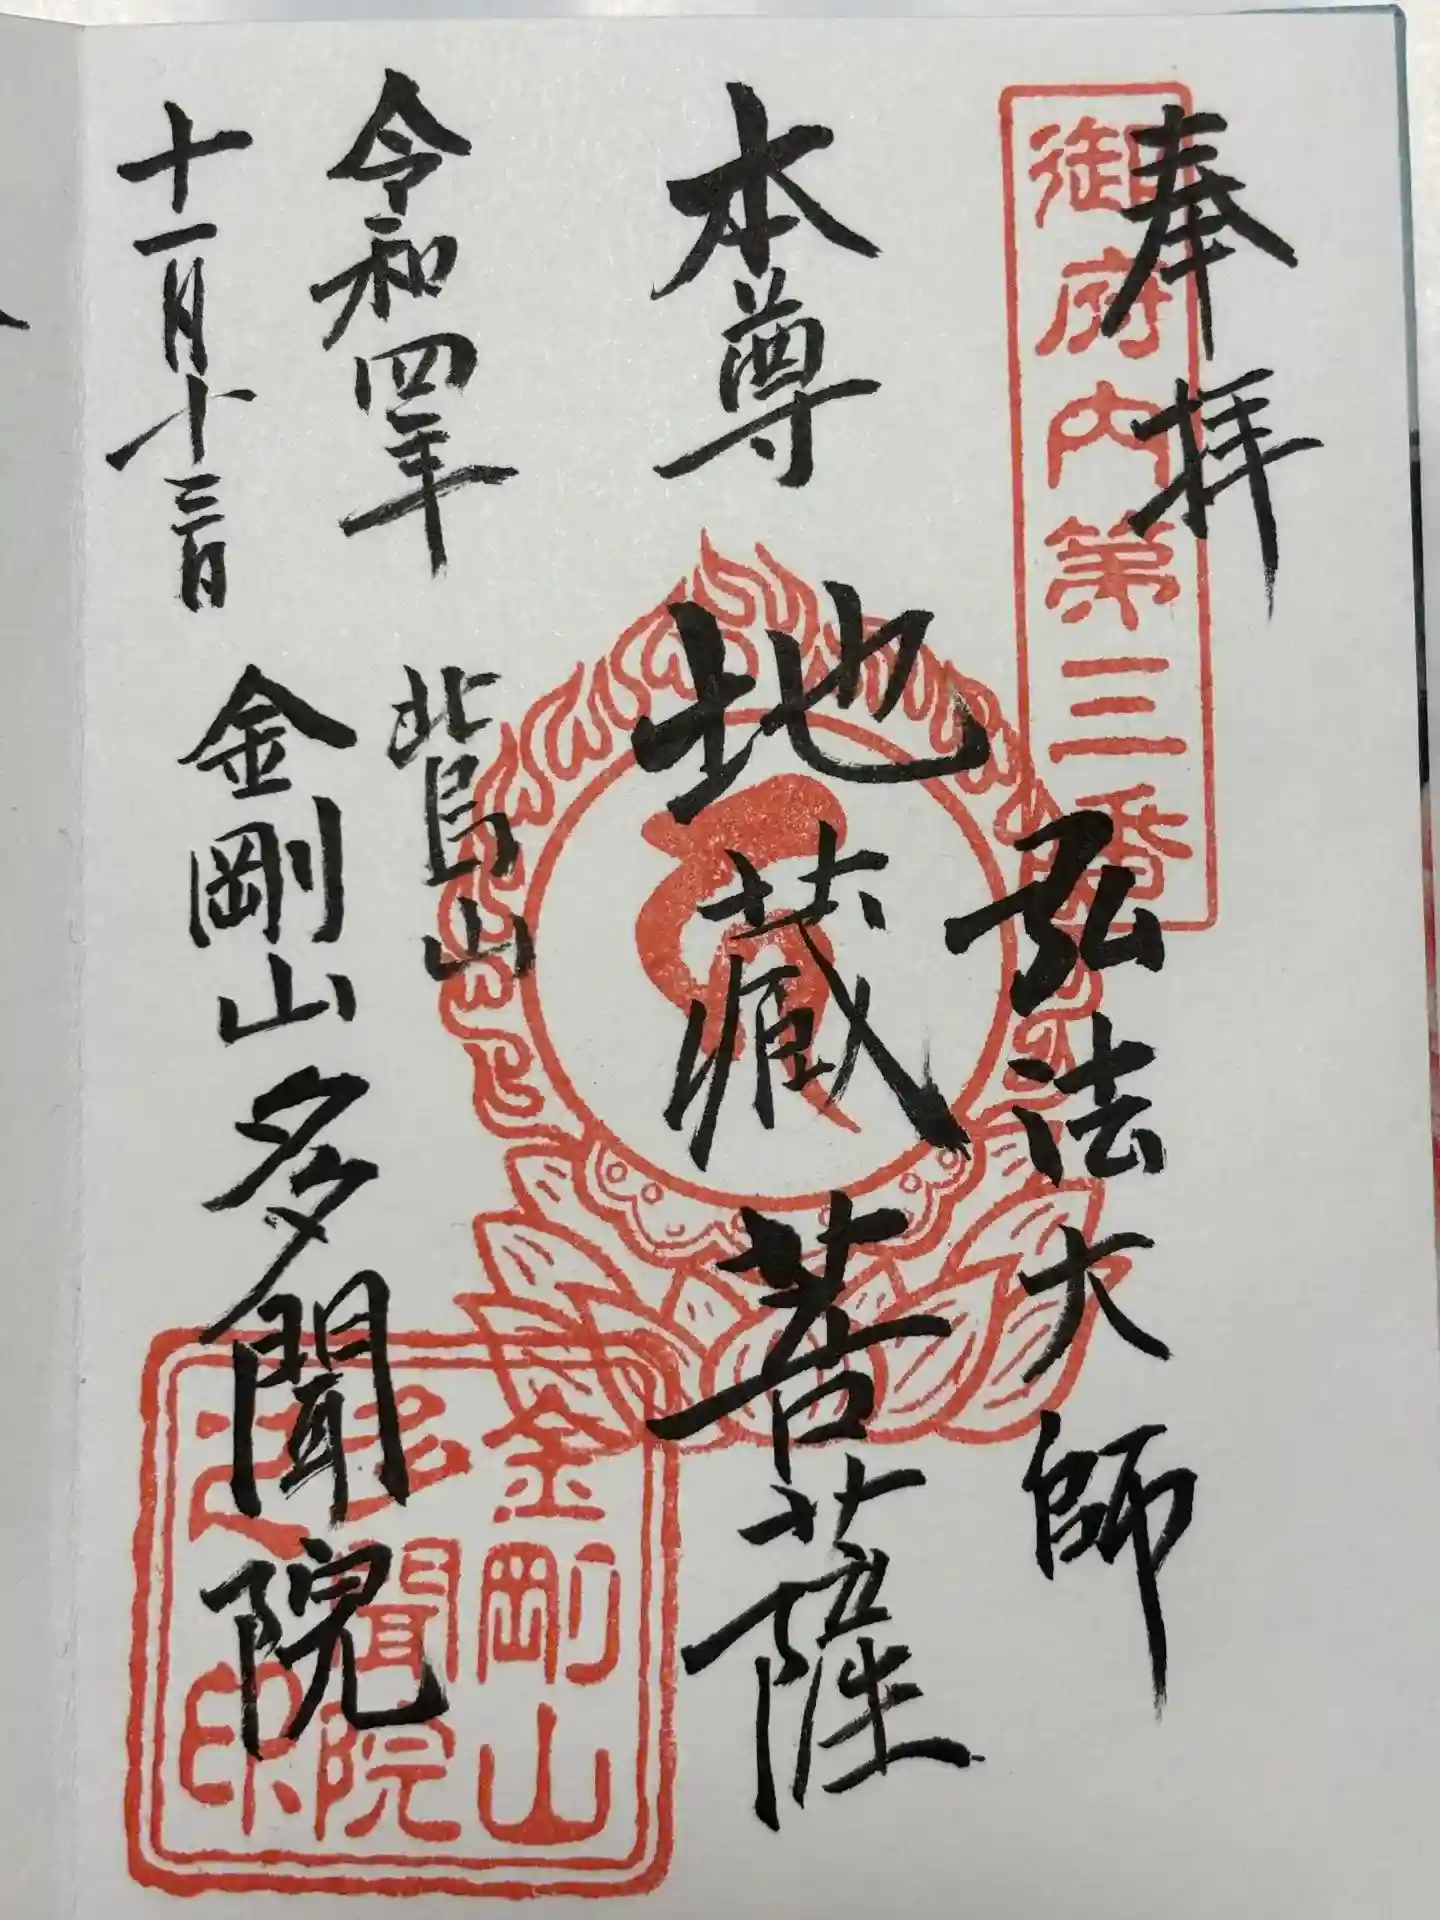 奉拝
御府内第三番
弘法大師
本尊 地蔵菩薩
令和四年
十一月十三日
北烏山
金剛山多聞院
金剛山
多聞院
之印